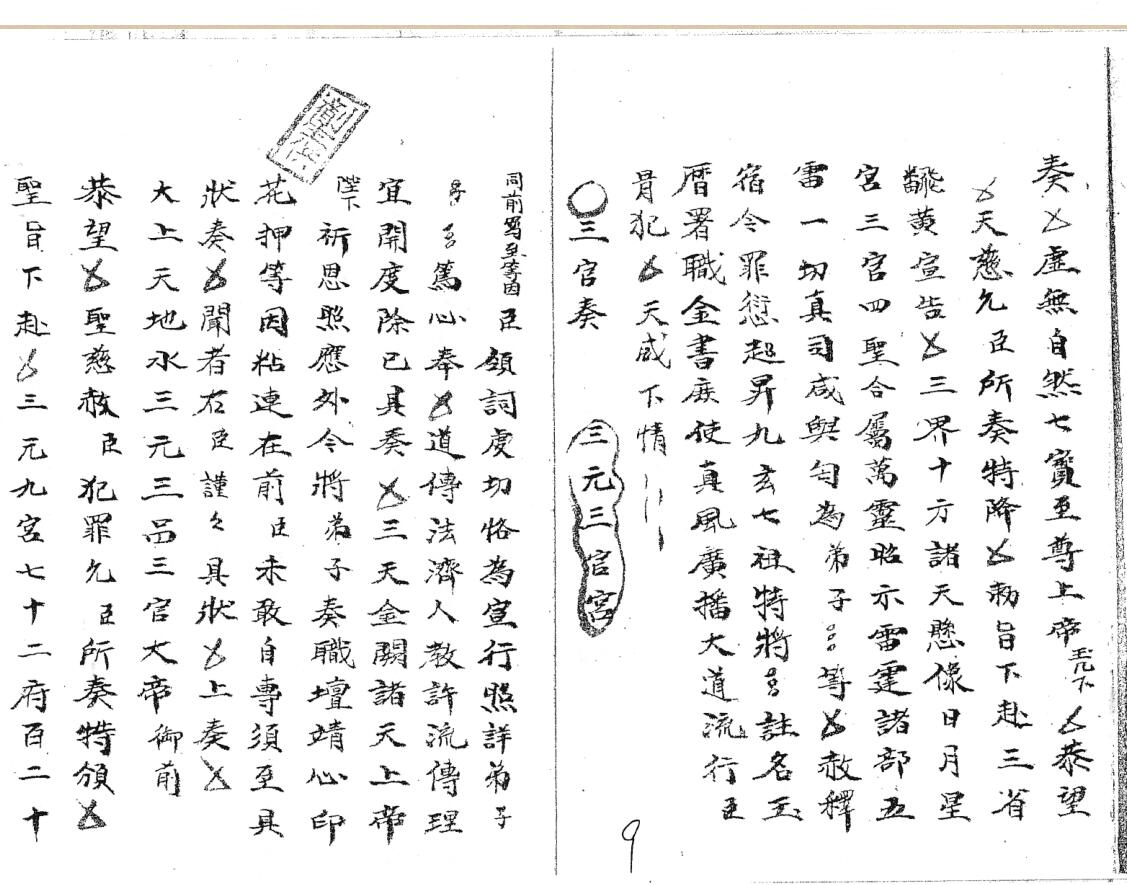 奏 虛無自然七寶至尊上帝玉几下 恭望
天慈允臣所奏特降 勅旨下赴三省
飜黃宣告 三界十方諸天懸像日月星
宮三官四聖合屬萬靈昭示雷霆諸部五
雷一切真司咸與匄為弟子 等 赦釋
宿令罪愆超昇九玄七祖特將 註名玉
曆署職金書庶使真風廣播大道流行臣
冐犯 天威下情
○三官奏 三元三官宮
同前寫至等因臣領詞虔切恪為宣行照詳弟子
篤心奉 道傳法濟人教許流傳理
宜開度除已具奏 三天金闕諸天上帝
陛下祈恩照應外今將弟子奏職壇靖心印
花押等因粘連在前臣未敢自專須至具
狀奏 聞者右臣謹々具狀 上奏
大上天地水三元三品三官大帝御前
恭望 聖慈赦臣犯罪允臣所奏特頒
聖旨下赴 三元九宮七十二府百二十
9